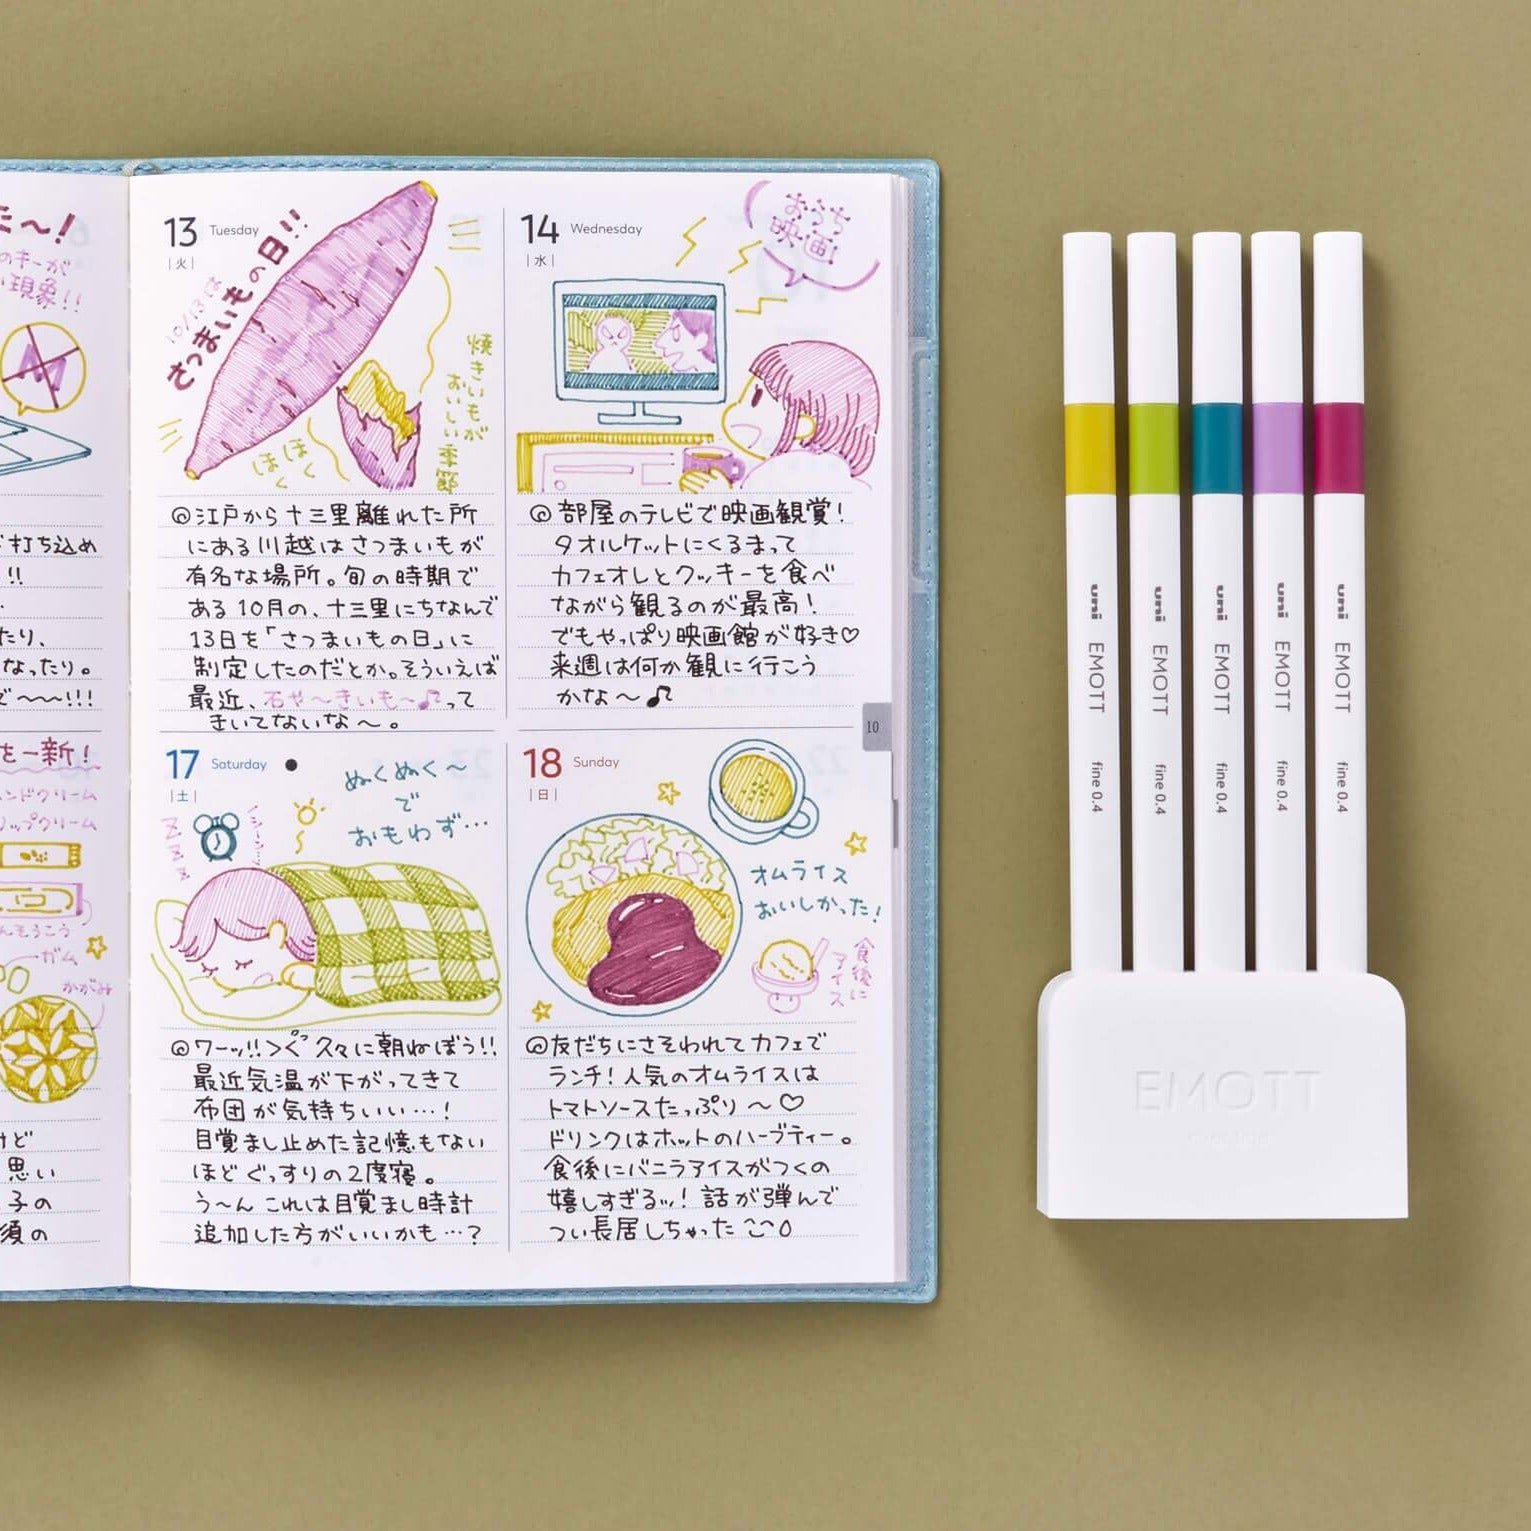 た〜!
のキーが
い現象!!
打ち込め
!!
たり、
なったり。
で〜〜!!!
を一新!
ンドクリーム
リップクリーム
んそうこう
ガム
かがみ
けど
思い
子の
須の
13 Tuesday
|火|
10/13は
さつまいもの日!!
焼きいもが
おいしい季節
ほく
ほく
◎江戸から十三里離れた所
にある川越はさつまいもが
有名な場所。旬の時期で
ある10月の、十三里にちなんで
13日を「さつまいもの日」に
制定したのだとか。そういえば
最近、石や〜きいも〜♪って
きいてないな〜。
14 Wednesday
|水|
おうち
映画
◎部屋のテレビで映画観賞!
タオルケットにくるまって
カフェオレとクッキーを食べ
ながら観るのが最高!
でもやっぱり映画館が好き♡
来週は何か観に行こう
かな〜♪
10
17 Saturday
|土|
ぬくぬく〜
で
おもわず…
◎ワーッ!!>ぐっ 久々に朝ねぼう!!
最近気温が下がってきて
布団が気持ちいい…!
目覚まし止めた記憶もない
ほどぐっすりの2度寝。
う〜んこれは目覚まし時計
追加した方がいいかも…?
18 Sunday
|日|
オムライス
おいしかった!
食後に
アイス
◎友だちにさそわれてカフェで
ランチ!人気のオムライスは
トマトソースたっぷり〜♡
ドリンクはホットのハーブティー。
食後にバニラアイスがつくの
嬉しすぎるッ!話が弾んで
つい長居しちゃった
uni EMOTT fine 0.4
uni EMOTT fine 0.4
uni EMOTT fine 0.4
uni EMOTT fine 0.4
uni EMOTT fine 0.4
EMOTT